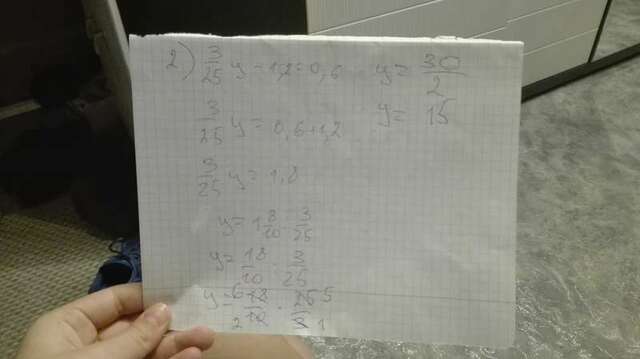 2) 3/25 y - 1,2 = 0,6
3/25 y = 0,6 + 1,2
3/25 y = 1,8
y = 1 8/10 : 3/25
y = 18/10 : 3/25
y = 6 18/10 2 · 25 5/3 1
y = 30/2
y = 15